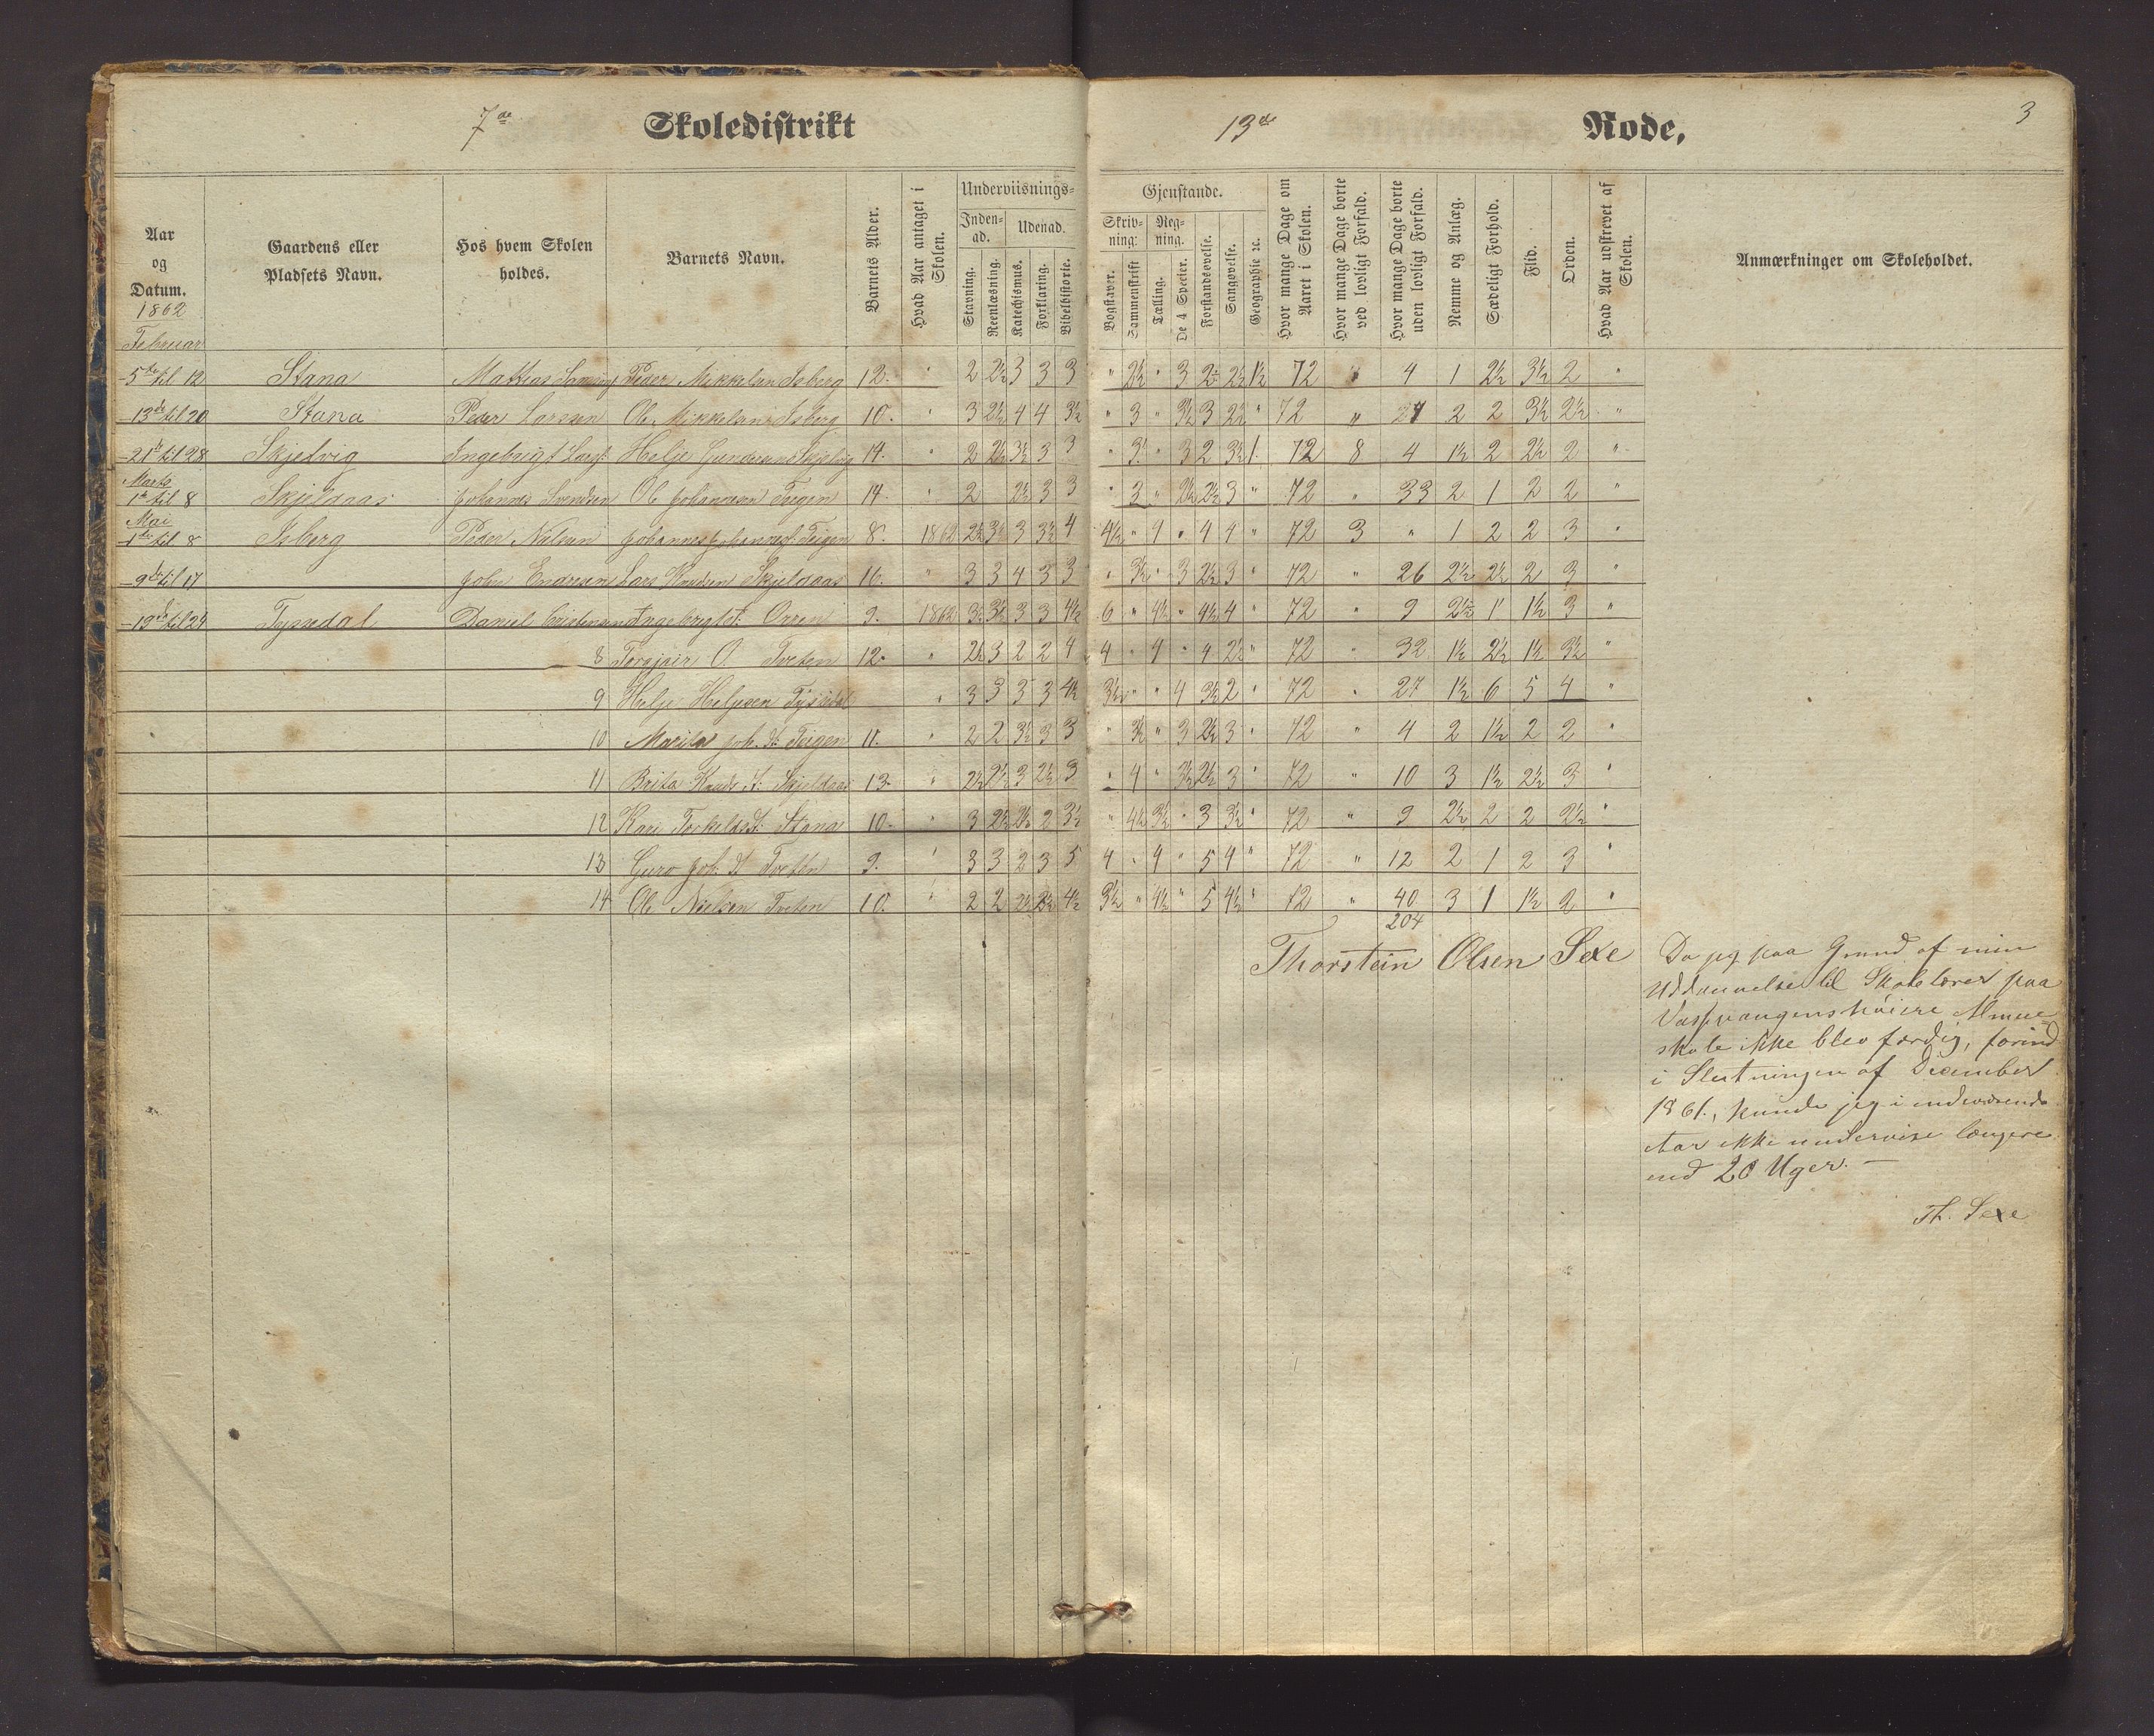 7de Skoledistrikt 13de Rode, 3
Underviisnings= Gjenstande.
Inden= ad. Udenad. Skriv= ning: Reg= ning.
Aar og Datum. Gaardens eller Pladsets Navn. Hos hvem Skolen holdes. Barnets Navn. Barnets Alder. Hvad Aar antaget i Skolen. Stavning. Reenlæsning. Katechismus. Forklaring. Bibelhistorie. Bogstaver. Sammenskrift Tælling. De 4 Specier. Forstandsøvelse. Sangøvelse. Geographie ꝛc. Hvor mange Dage om Aaret i Skolen. Hvor mange Dage borte ved lovligt Forfald. Hvor mange Dage borte uden lovligt Forfald. Nemme og Anlæg. Sædeligt Forhold. Flid. Orden. Hvad Aar udskrevet af Skolen. Anmærkninger om Skoleholdet.
1862
Februar
5te til 12 Stana Mattias Peder Mikkelsen Isberg 12. " 2 2½ 3 3 3 " 2½ " 3 2½ 2½ 1½ 72 " 4 1 2½ 3½ 2 "
13de til 20 Stana Peder Larssen Ole Mikkelsen Isberg 10. " 3 2½ 4 4 3½ " 3 " 3½ 3 2½ " 72 " 27 2 2 3½ 2½ "
21de til 28 Skjelvig Ingebrigt Lars: Helje Skjelvig 14. " 2 2½ 3½ 3 3 " 3½ " 3 2 3½ 1. 72 8 4 1½ 2 2½ 2 "
Marts
1te til 8 Skjeldaas Johannes Svendsen Ole Johannesen Teigen 14 " 2 2½ 3 3 " 3 " 2½ 2½ 3 " 72 " 33 2 1 2 2 "
Mai
1ste til 8 Isberg Peder Nilsen Johannes Johannes: Teigen 8. 1862 2½ 3½ 3 3½ 4 4½ " 4 " 4 4 " 72 3 " 1 2 2 3 "
9de til 17 John Endresen Lars Knudsen Skjeldaas 16. " 3 3 4 3 3 " 3½ " 3 2½ 3 " 72 " 26 2½ 2½ 2 3 "
19de til 24 Tyssedal Daniel Ingebrigt Orren 9. 1862 3½ 3½ 3 3 4½ 6 " 4½ " 4½ 4 " 72 " 9 2½ 1 1½ 3 "
8 Torgjeir O. Tveten 12. " 2½ 3 2 2 4 4 " 4 " 4 2½ " 72 " 32 1½ 2½ 1½ 3½ "
9 Helje Heljesen Tyssedal " 3 3 3 3 4½ 3½ " " 4 3½ 2 " 72 " 27 1½ 6 5 4 "
10 Marita Joh. D: Teigen 11. " 2 2 3½ 3 3 " 3½ " 3 2½ 3 " 72 " 4 2 1½ 2 2 "
11 Brita Knuds D: Skjeldaas 13. " 2½ 2½ 3 2½ 3 " 4 " 3½ 2½ 3 " 72 " 10 3 1½ 2½ 3 "
12 Kari Torkelsd: Stana 10. " 3 2½ 2½ 2 3½ " 4½ 3½ " 3 3½ " 72 " 9 2½ 2 2 2½ "
13 Guro Joh. D Tveten 9. " 3 3 2 3 5 4 " 4 " 5 4 " 72 " 12 2 1 2 3 "
14 Ole Nielsen Tveten 10. " 2 2 2½ 2½ 4½ 3½ " 4½ " 5 4½ " 72 " 40 3 1 1½ 2 "
204
Thorstein Olsen Sexe
Da jeg paa Grund af min
Uddannelse til Skolelærer paa
Vossevangens høiere Almue=
skole ikke blev færdig, førend
i Slutningen af December
1861., kunde jeg i indeværende
Aar ikke undervise længere
end 20 Uger. —
Th. Sexe